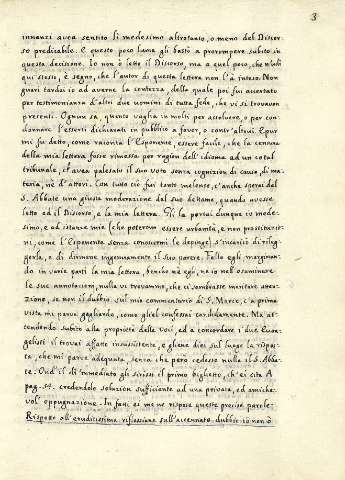 3
innanzi avea sentito li medesimo altrotanto, o meno del Discor-
so predicabile. E questo poco lume gli bastò a prorompere subito in
questa decisione. Io non ò letto il Discorso, ma a quel poco, che n'udì
qui stesso, è segno, che l'autor di questa lettera non l'à inteso. Non
guari tardai io ad averne la contezza, della quale poi fui accertato
per testimonianza d'altri due uomini di tutta fede, che vi si trovavan
presenti. Ognun sa, quanto vaglia in molti per assolvere, o per con-
dannare l'essersi dichiarati in pubblico a favor, o contr'altrui. Epur
mi fu detto, come raionta l'Esponente, essere facile, che la censura
della mia lettera fosse rimessa per ragion dell'idioma ad un cotal
tribunale, ch'avea palesato il suo voto senza cognizion di causa, di ma-
teria, nè d'attori. Con tutto ciò fui tanto melenso, ch'anche sperai dal
S. Abbate una giusta moderazione del suo dettame, quando avesse
letto ed il Discorso, e la mia lettera. Gli la portai dunque io mede-
simo, e ad istanze mie (che poterono essere urbanità, e non prostituzio-
ni, come l'Esponente senza conoscermi le depinge) s'incaricò di rileg-
gerla, e di dirmene ingenuamente il suo parere. Fello egli marginan-
do in varie parti la mia lettera, benchè nè egò, nè io nell'esaminare
le sue annotazioni, nulla vi trovammo, che ci sembrasse meritare atten-
zione, se non il dubbio sul mio commentario di S. Marco, ch'a prima
vista mi parve gagliardo, come glie'l confessai candidamente. Ma at-
tendendo subito alla proprietà delle voci, ed a concordare i due Evan-
gelisti il trovai affatto insussistente, e gliene diei sul luogo la rispos-
ta, che mi parve adequata, senza che però cedesse nulla il S. Abba-
te: Ond'il dì immediato gli scrissi il primo biglietto, ch'ei cita A
pag. 54. credendolo soluzion sufficiente ad una privata, ed amiche-
vol' oppugnazione. In fatti ei me ne rispose queste precise parole:
Rispose all'eruditissima riflessione sull'accennato dubbio io non ò